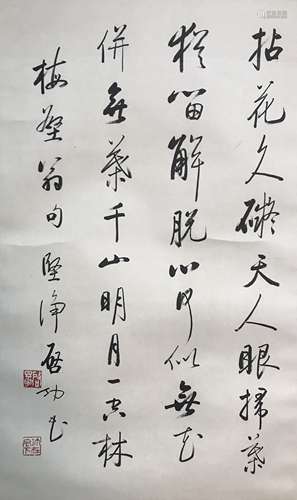 拈花久礙天人眼掃葉
猶留解脫心何似無花
併無葉千山明月一空林
梅壑翁句 堅淨啟功書